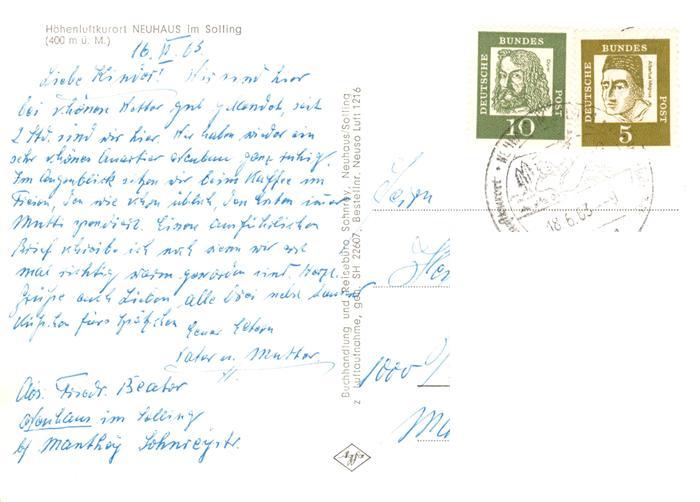 Höhenluftkurort NEUHAUS im Solling
(400 m ü. M.)
16. VI. 63
Liebe Kinder! Wir sind hier
bei schönem Wetter gut gelandet, seit
2 Std. sind wir hier. Wir haben wieder ein
sehr schönes Quartier ganz ruhig.
Im Augenblick sitzen wir beim Kaffee im
Freien, den wie schon üblich, den ersten immer
Mutti spendiert. Einen ausführlichen
Brief schreibe ich noch wenn wir erst
mal richtig warm geworden sind. Herzl.
Grüße Euch Lieben, alle drei nebst
fürs
Eure Eltern
Vater u. Mutter.
Abs. Friedr. Beator
Neuhaus im Solling
b/ Manthey Sohnreystr.
Buchhandlung und Reisebüro Schnrey, Neuhaus/Solling
z Luftaufnahme, geg. SH 22607, Bestellnr. Neuso Luft 1216
Agfa
DEUTSCHE
BUNDES
POST
Dürer
10
DEUTSCHE
BUNDES
POST
Albertus Magnus
5
18.6.63
1000